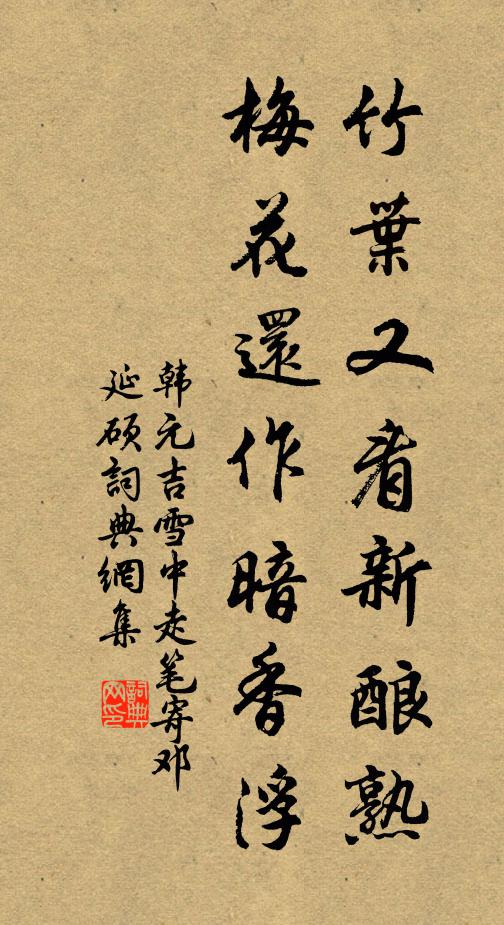 竹葉又看新酿熟
梅花還作暗香浮
韩元吉雪中走笔寄邓
延硕詞典網集
詞典网印